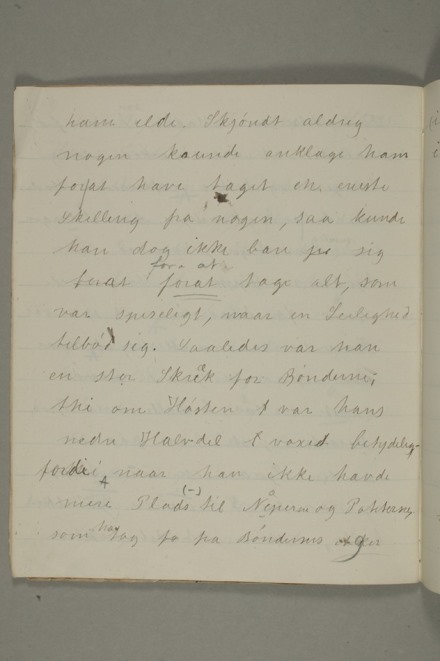 ham ilde. Skjöndt aldrig
nogen kunde anklage ham
forat have taget en eneste
Skilling fra nogen, saa kunde
han dog ikke bare sig
for at
forat tage alt, som
var speseligt, naar en Leilighed
tilböd sig. Saaledes var han
en stor Skræk for Bönderne;
thi om Hösten var hans
nedre Halvdel voxed betydelig
fordi naar han ikke havde
mere Plads (-) til Næperne og Poteterne,
som han tog fra Böndernes